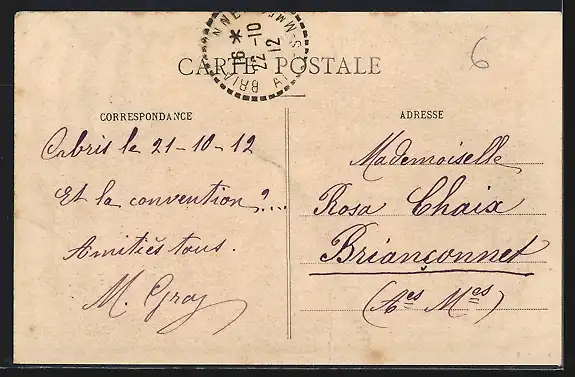 CARTE POSTALE
BRIANÇONNET ALPES-MMES
16 * 22-10 12
6
CORRESPONDANCE
Cabris le 21-10-12
Et la convention?...
Amitiés tous.
M. Gray
ADRESSE
Mademoiselle
Rosa Chaix
Briançonnet
(Aes Mes)